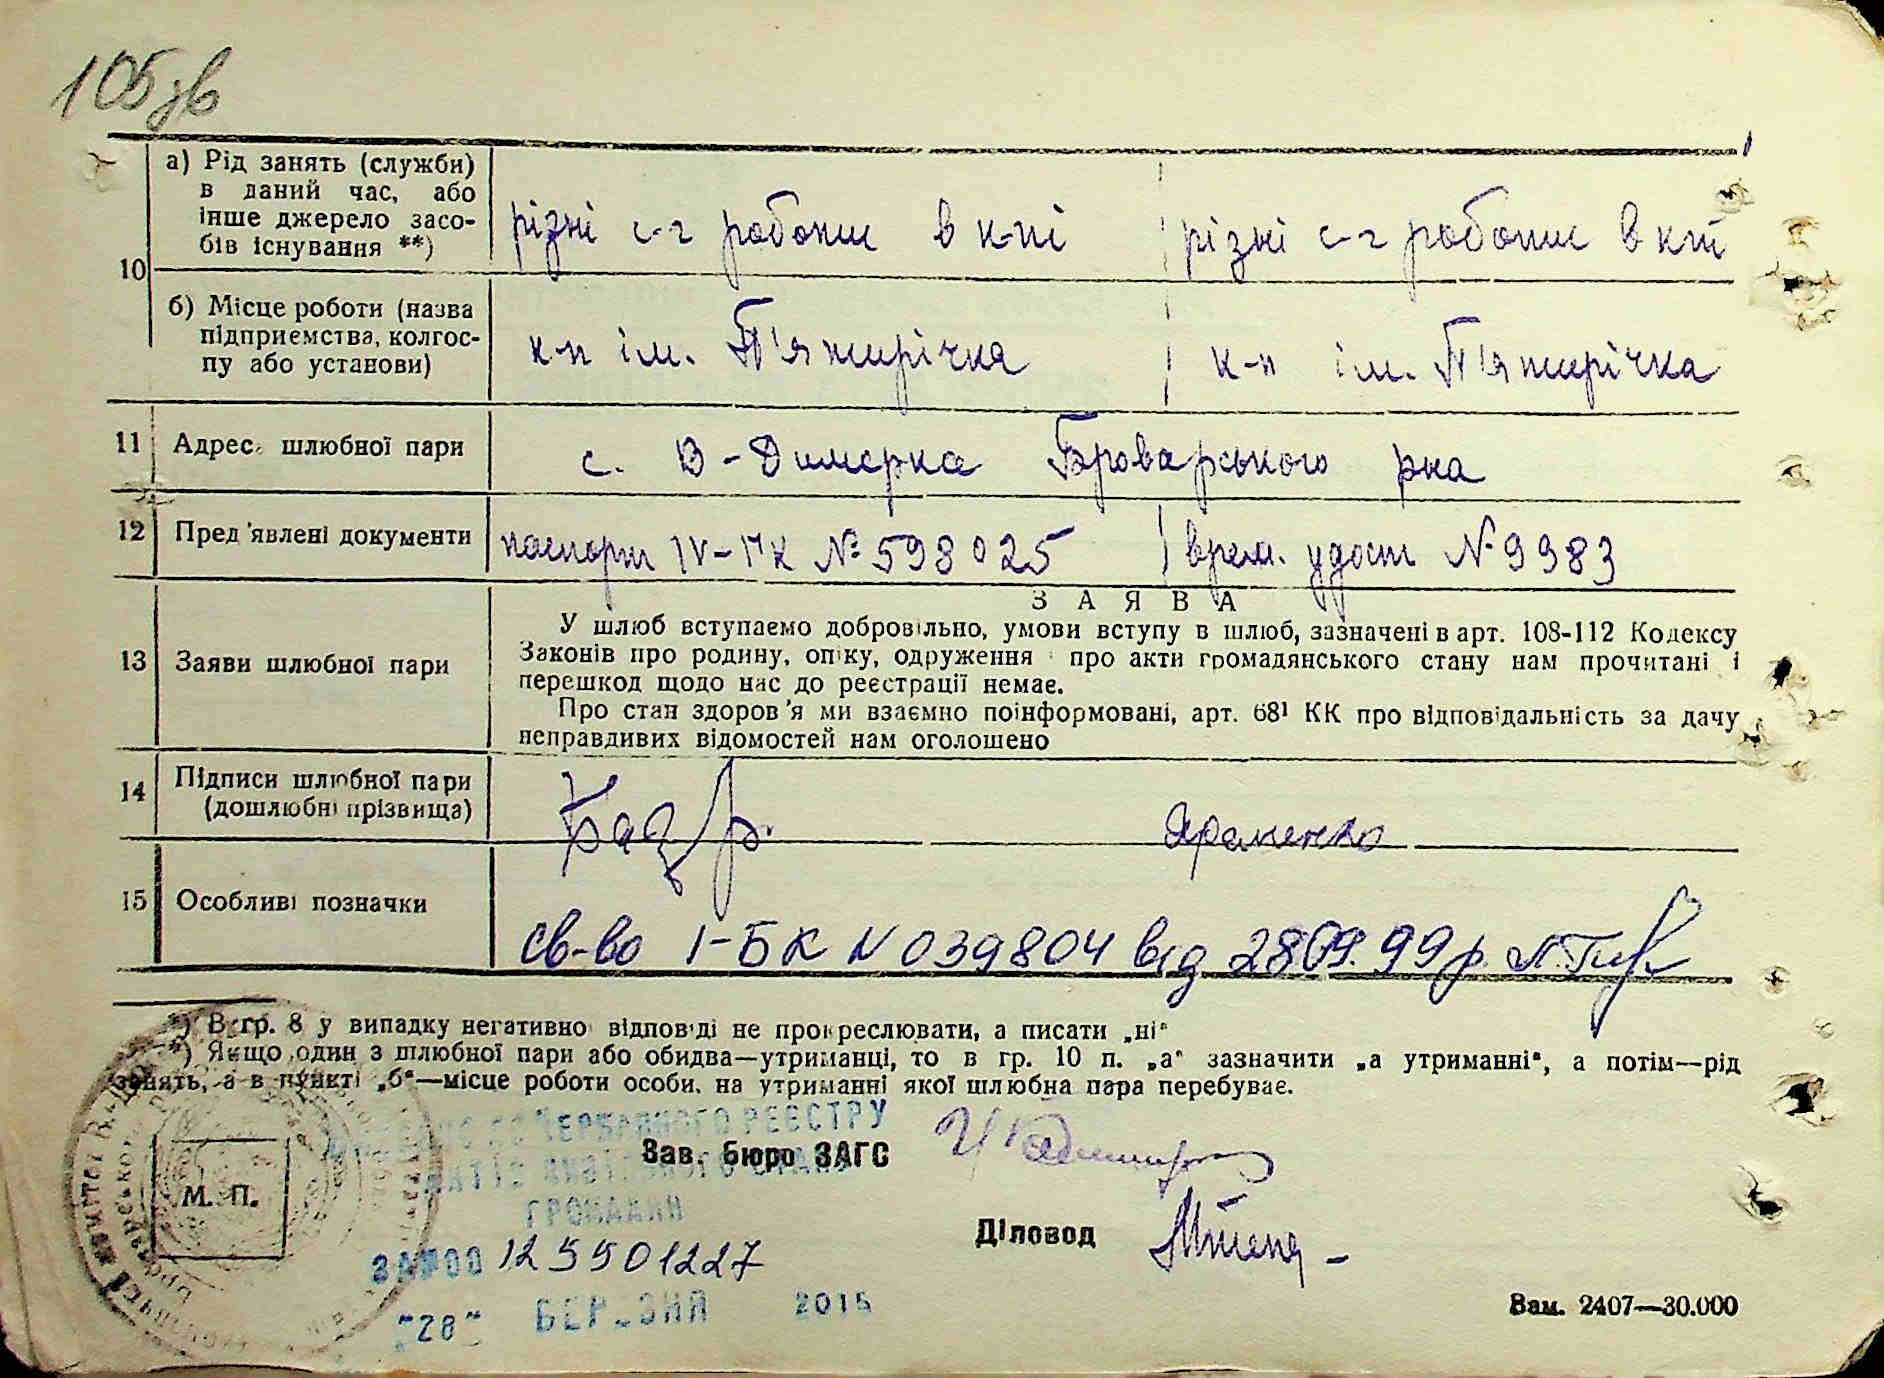 105зв
а) Рід занять (служби)
в даний час, або
інше джерело засо-
бів існування **)
різні с-г роботи в к-пі
різні с-г роботи в кпі
10
б) Місце роботи (назва
підприємства, колгос-
пу або установи)
к-п ім. П'ятирічка
к-п ім. П'ятирічка
11 Адрес шлюбної пари
с. В-Димерка Броварського рна
12 Пред'явлені документи
паспорт IV-ПК № 598025
врем. удост № 9983
ЗАЯВА
13 Заяви шлюбної пари
У шлюб вступаємо добровільно, умови вступу в шлюб, зазначені в арт. 108-112 Кодексу
Законів про родину, опіку, одруження про акти громадянського стану нам прочитані і
перешкод щодо нас до реєстрації немає.
Про стан здоров'я ми взаємно поінформовані, арт. 68¹ КК про відповідальність за дачу
неправдивих відомостей нам оголошено
14 Підписи шлюбної пари
(дошлюбні прізвища)
Яременко
15 Особливі позначки
Св-во І-БК N 039804 від 28.09.99р.
*) В гр. 8 у випадку негативної відповіді не прокреслювати, а писати „ні“
*) Якщо один з шлюбної пари або обидва—утриманці, то в гр. 10 п. „а“ зазначити „а утриманні“, а потім—рід
занять, а в пункті „б“—місце роботи особи, на утриманні якої шлюбна пара перебуває.
ДЕРЖАВНОГО РЕЄСТРУ
Зав. бюро ЗАГС
АКТІВ ЦИВІЛЬНОГО СТАНУ
М. П.
ГРОМАДЯН
Діловод
ЗА №00 125501227
"28" БЕРЕЗНЯ 2015
Зам. 2407—30.000